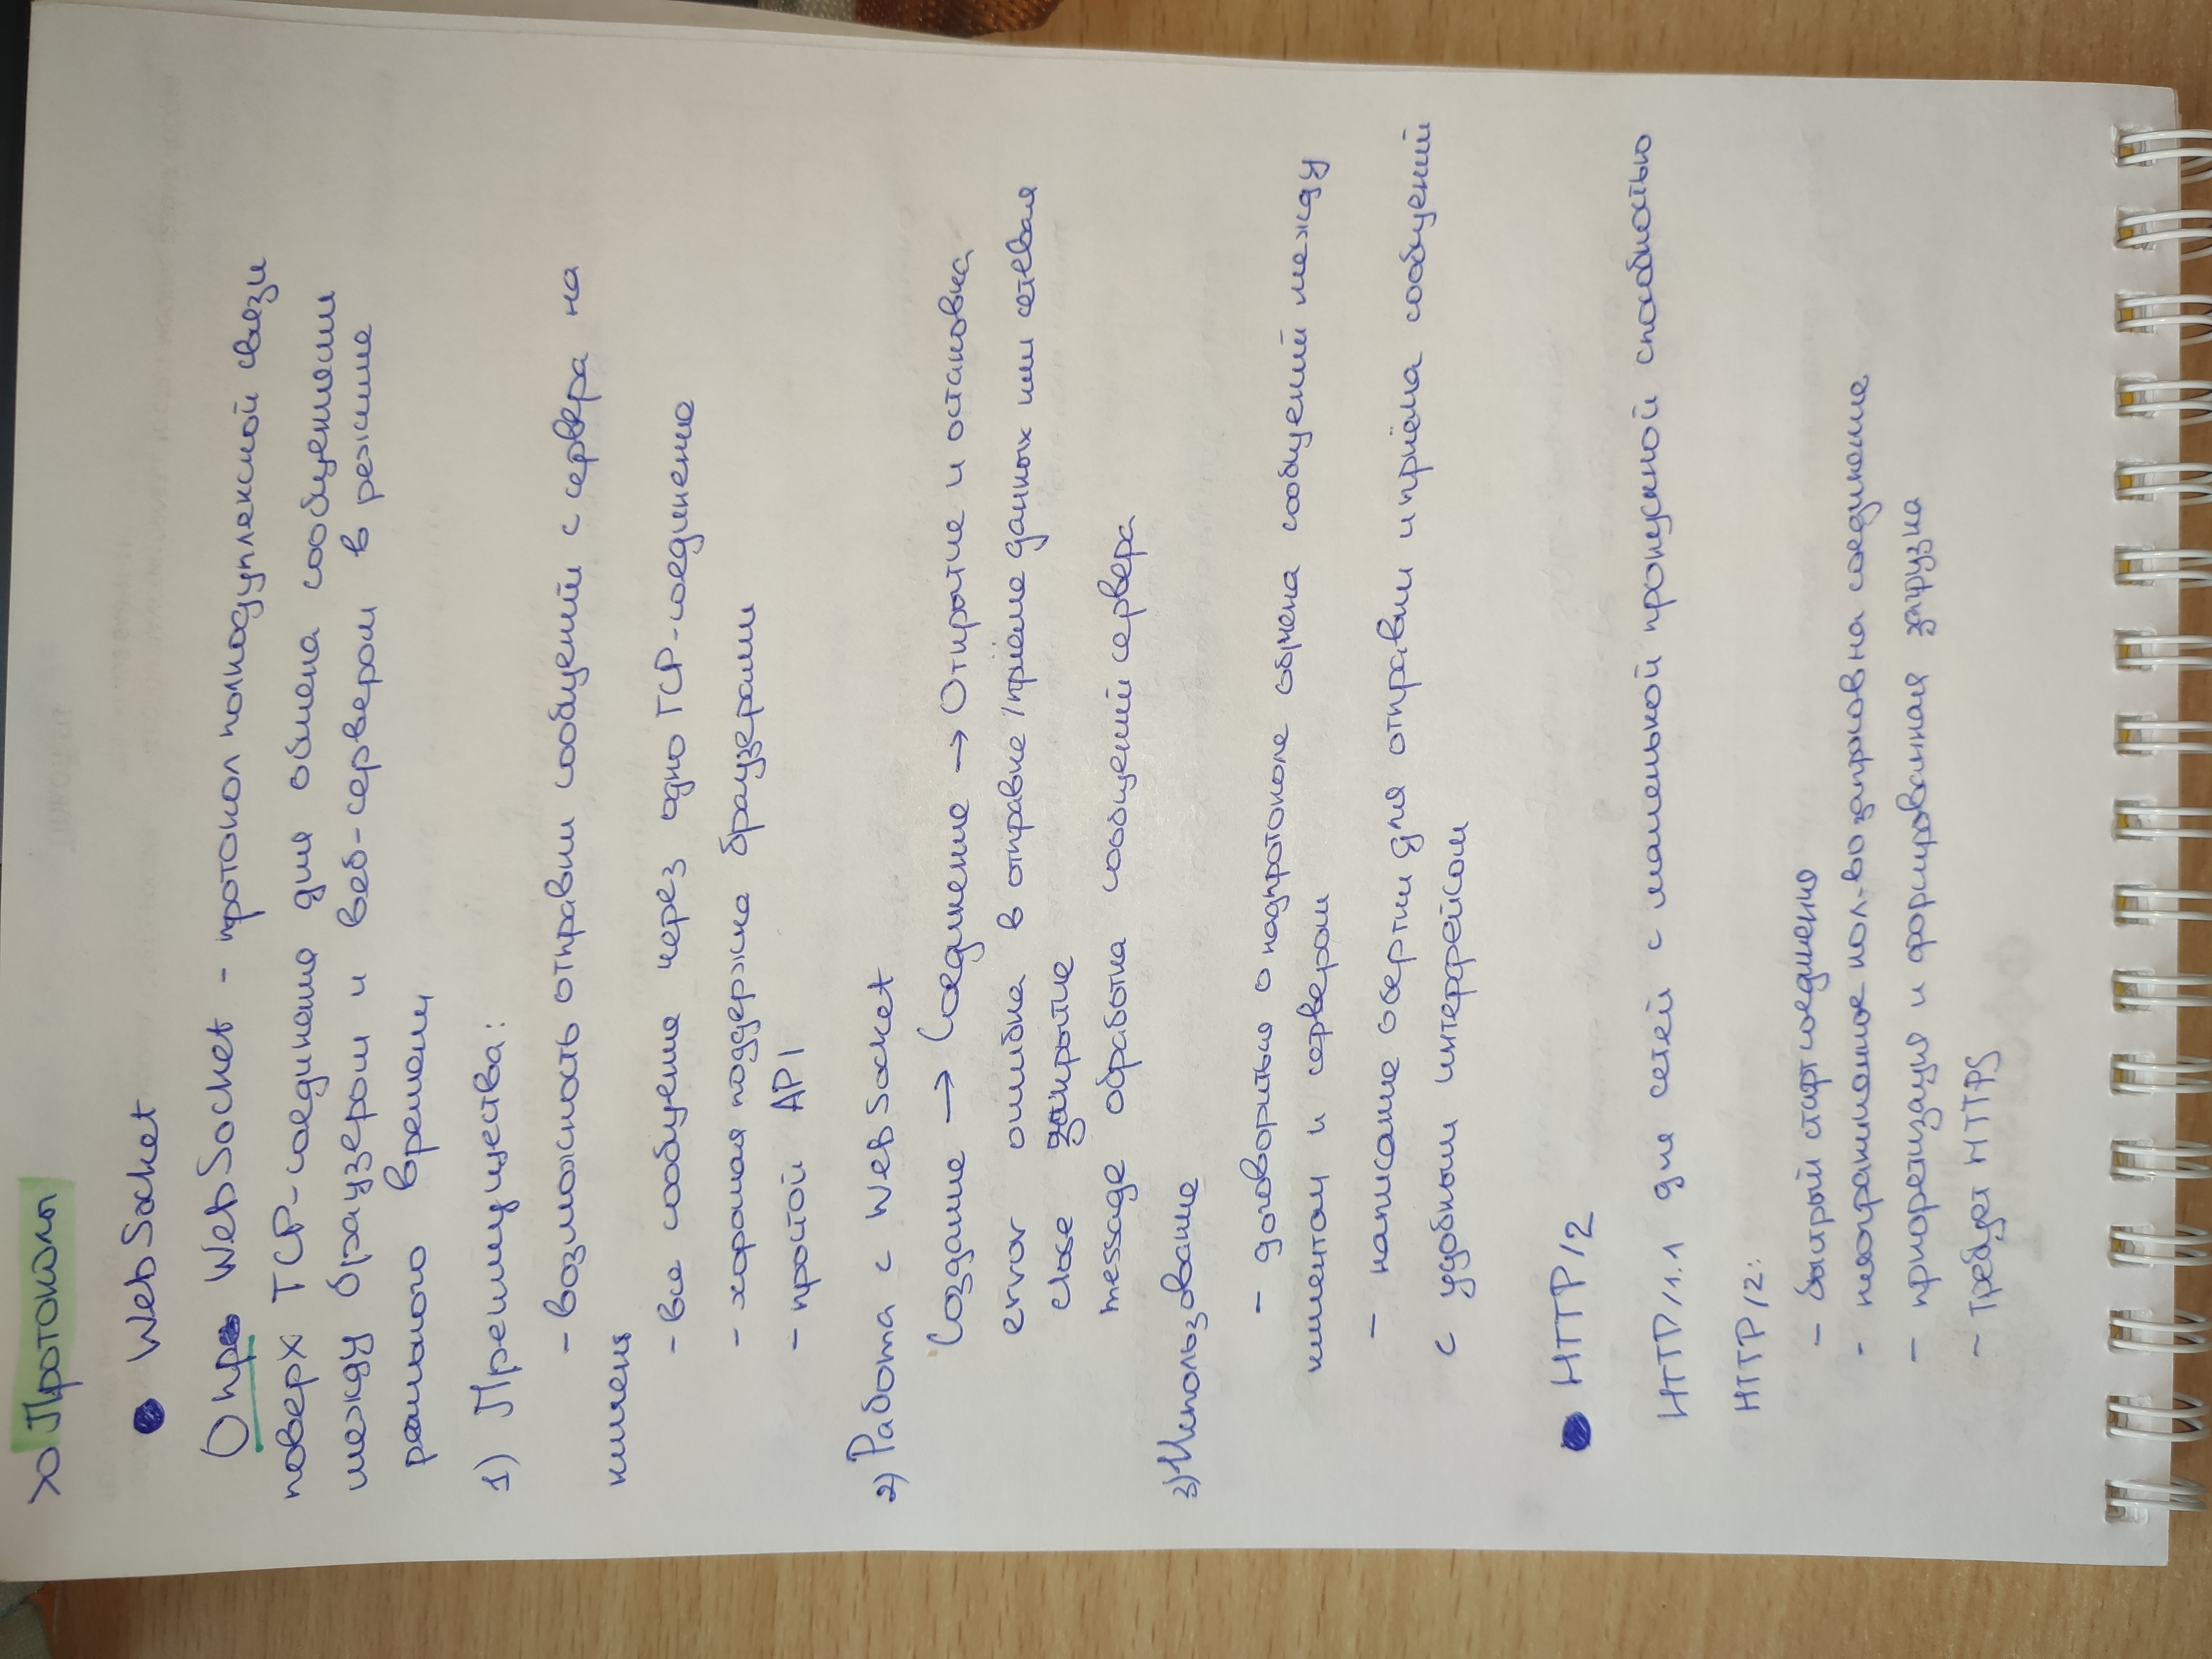 Протоколы
WebSocket
Опр WebSocket - протокол полнодуплексной связи
поверх TCP-соединения для обмена сообщениями
между браузером и веб-сервером в режиме
реального времени
1) Преимущества:
- возможность отправки сообщений с сервера на
клиент
- все сообщения через одно TCP-соединение
- хорошая поддержка браузерами
- простой API
2) Работа с WebSocket
Создание → Соединение → Открытие и остановка
error ошибка в отправке / приёме данных или сетевая
close закрытие
message обработка сообщений сервера
3) Использование
- договориться о надпротоколе обмена сообщений между
клиентом и сервером
- написание обертки для отправки и приёма сообщений
с удобным интерфейсом
HTTP/2
HTTP/1.1 для сетей с маленькой пропускной способностью
HTTP/2:
- быстрый старт соединения
- неограниченное кол-во запросов на соединение
- приоретизация и формированная загрузка
- требует HTTPS